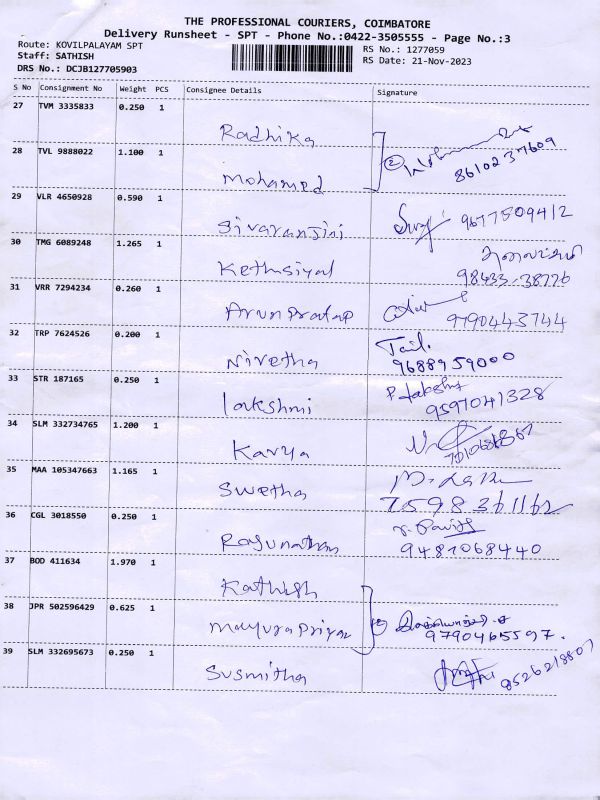 THE PROFESSIONAL COURIERS, COIMBATORE
Delivery Runsheet - SPT - Phone No.:0422-3505555 - Page No.:3
Route: KOVILPALAYAM SPT
RS No.: 1277059
Staff: SATHISH
RS Date: 21-Nov-2023
DRS No.: DCJB127705903
S No Consignment No Weight PCS Consignee Details Signature
27 TVM 3335833 0.250 1 Radhika
28 TVL 9888022 1.100 1 Mohamed 2 8610237609
29 VLR 4650928 0.590 1 Sivaranjini 9677509412
30 TMG 6089248 1.265 1 Kethusiyal 98433-38776
31 VRR 7294234 0.260 1 Arun Pratap 9790443744
32 TRP 7624526 0.200 1 Nivetha 9688959000
33 STR 187165 0.250 1 lakshmi 9597041328
34 SLM 332734765 1.200 1 Kavya
35 MAA 105347663 1.165 1 Swetha 7598361162
36 CGL 3018550 0.250 1 Ragunathan 9487068440
37 BOD 411634 1.970 1 Kathish
38 JPR 502596429 0.625 1 Mayura Priya 9790465597.
39 SLM 332695673 0.250 1 Susmitha 8526218807